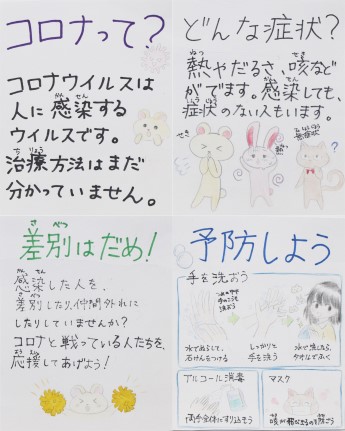 コロナって?
コロナウイルスは
人に感染する
ウイルスです。
治療方法はまだ
分かっていません。
どんな症状?
熱やだるさ、咳など
がでます。感染しても、
症状のない人もいます。
せき
熱
無症状
?
差別はだめ!
感染した人を、
差別したり、仲間外れに
したりしていませんか?
コロナと戦っている人たちを、
応援してあげよう!
予防しよう
手を洗おう
水でぬらして、
石けんをつける
しっかりと
手を洗う
水で流したら、
タオルでふく
アルコール消毒
両手全体にすりこもう
マスク
咳が
防ごう